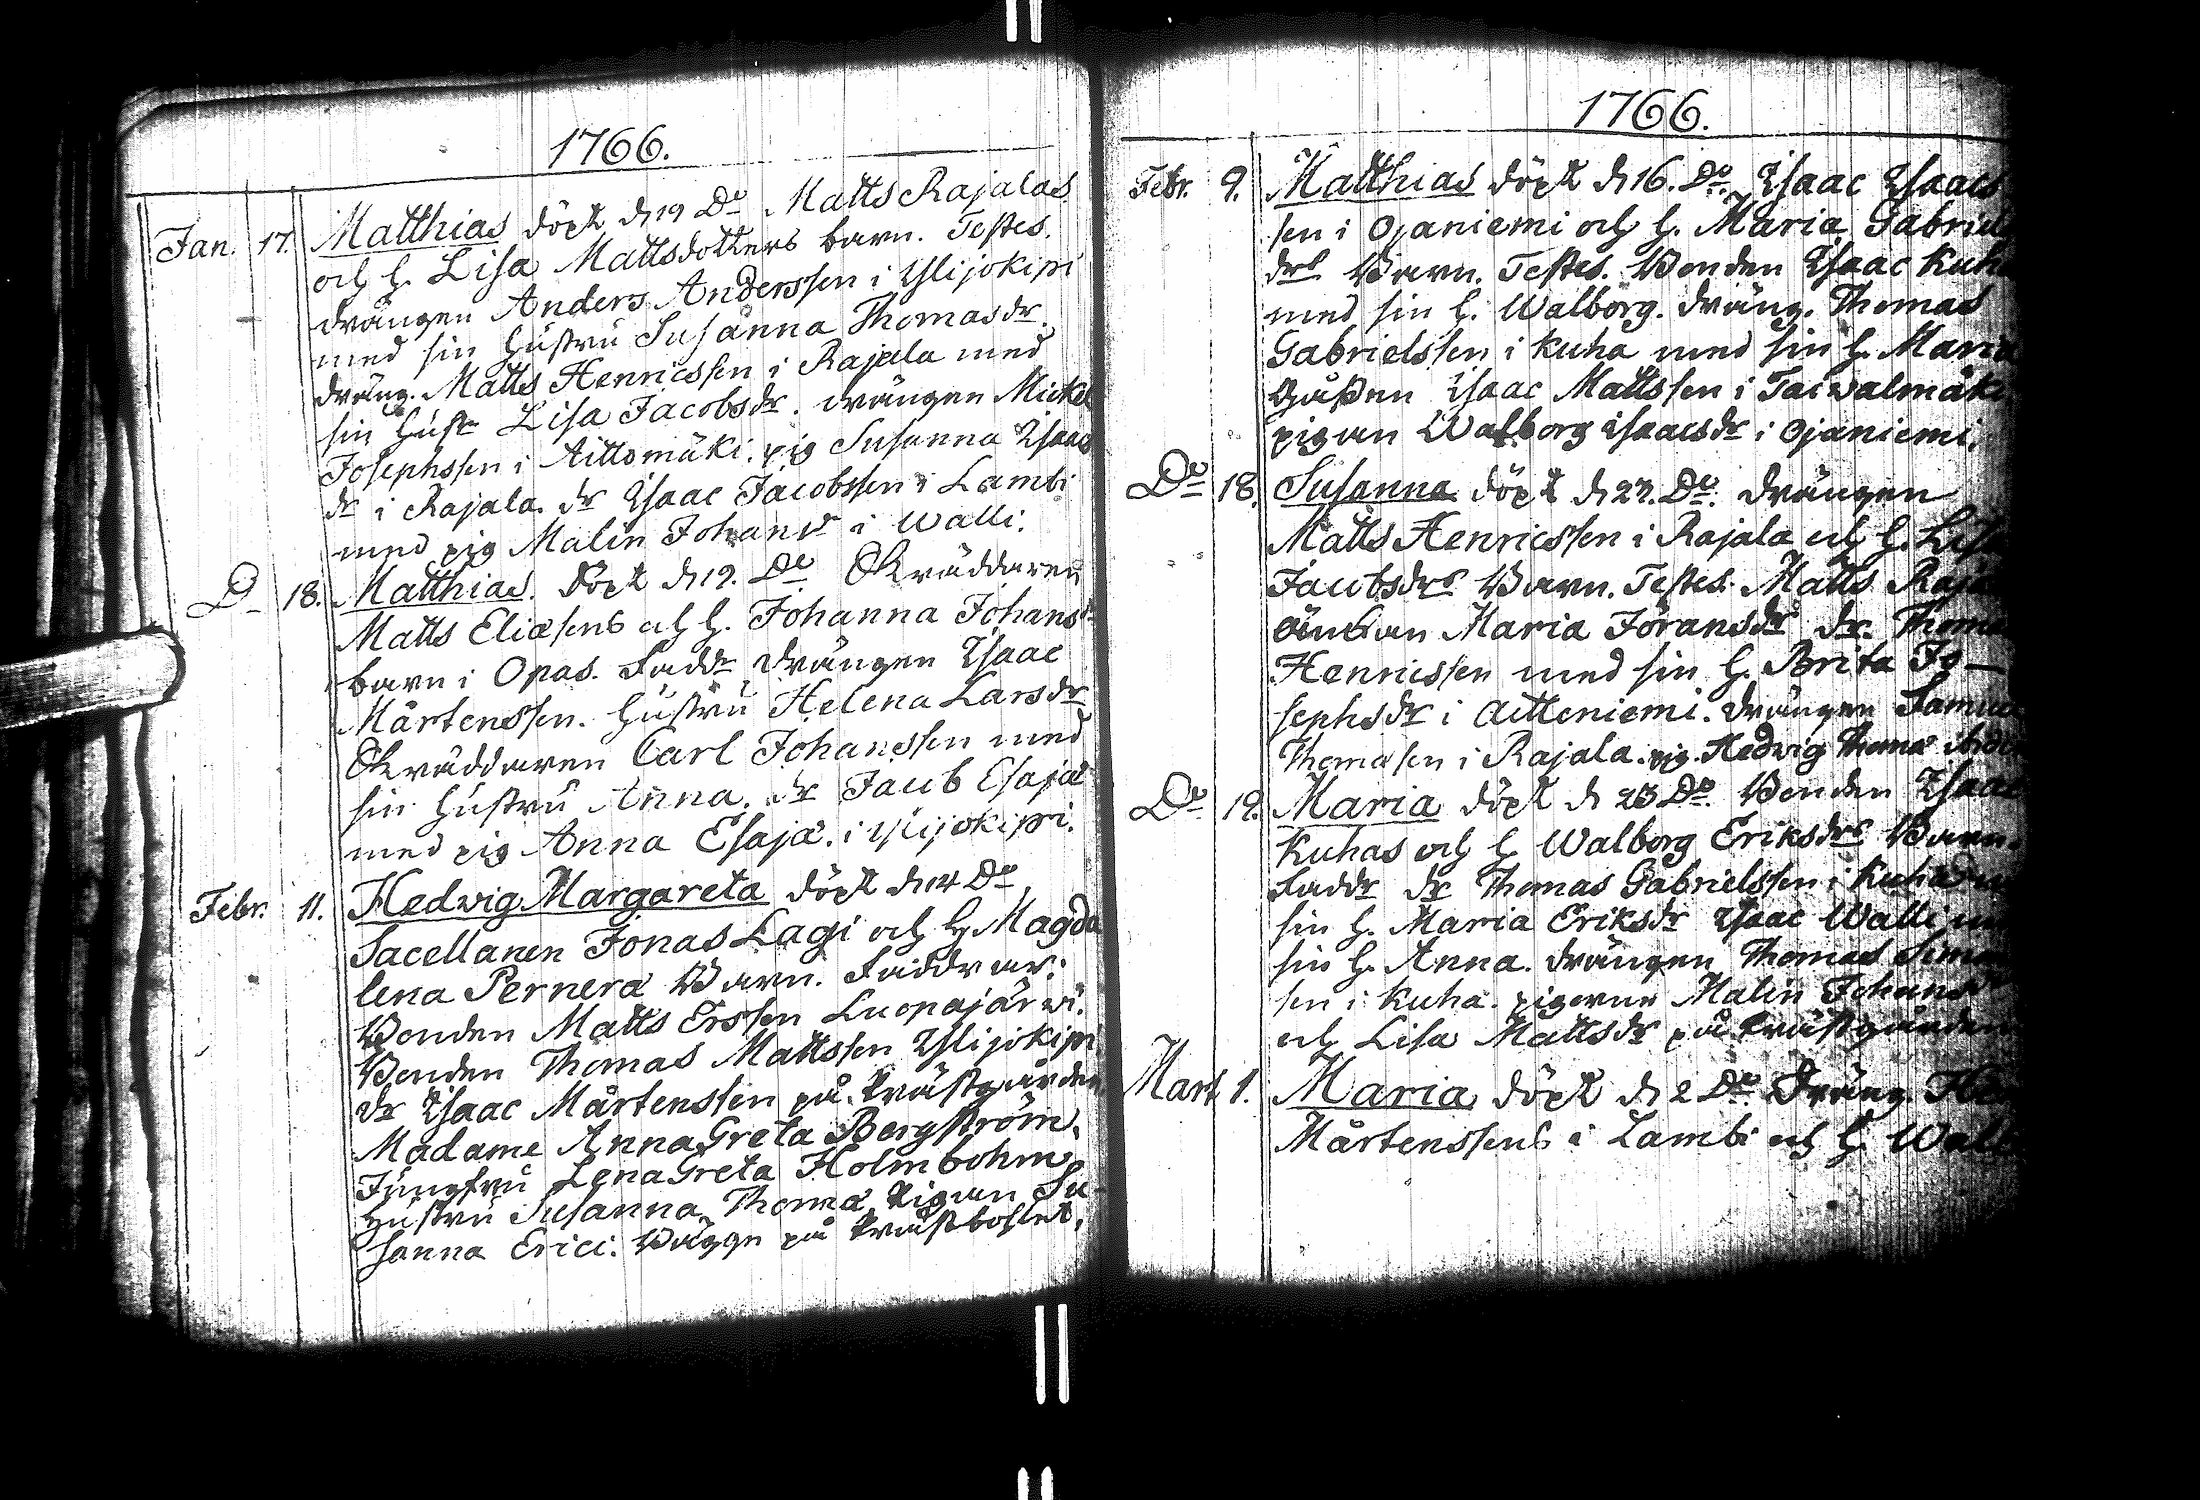 1766.
Jan. 17. Matthias döpt d. 19 Do Matts Rajalas
och h. Lisa Mattsdotters barn. Testes.
drängen Anders Anderssen i Ylijokipi
med sin hustru Susanna Thomasdr.
dräng. Matts Henricssen i Rajala med
sin hust Lisa Jacobsdr. drängen Mickel
Josephssen i Aittomäki. pig Susanna Isaacs
dr i Rajala. dr Isaac Jacobssen i Lambi
med pig Malin Johansdr i Walli.
D 18. Matthias. döpt d. 19. Do Skräddaren
Matts Eliæsens och h. Johanna Johans
barn i Opas. Faddr drängen Isaac
Mårtenssen. hustru Helena Larsdr
Skräddaren Carl Johanssen med
sin hustru Anna. dr Jacob Esajæ
med pig Anna Esajæ. i Ylijokipi.
Febr. 11. Hedwig Margareta döpt d. 14 Do
Sacellanen Jonas Lagi och h. Magda
lena Pernera Barn. Faddrar:
Bonden Matts Erssen Luopajärwi.
Bonden Thomas Mattssen Ylijokipi
dr Isaac Mårtenssen på Prästgården
Madame Anna Greta Bergström.
Jungfru Lena Greta Holmbohm
Hustru Susanna Thomæ Pigan Su-
sanna Erici. Bägge på Prästbohlet.
1766.
Febr. 9. Matthias döpt d. 16. Do. Isaac Isaacs
sen i Ojaniemi och h. Maria Gabriel
drs Barn. Testes. Bonden Isaac Kuha
med sin h. Walborg. dräng. Thomas
Gabrielssen i Kuha med sin h. Maria
Gåssen Isaac Mattssen i Taiwalmäki
pigan Walborg Isaacsdr i Ojaniemi.
Do 18. Susanna döpt d. 23. Do. drängen
Matts Henricssen i Rajala och h. Lisa
Jacobsdrs Barn. Testes. Matts Raja
änkan Maria Jöransdr dr. Thoma
Henricssen med sin h. Brita Jo-
sephsdr i Aitteniemi. drängen Samuel
Thomæsen i Rajala. pig. Hedwig Thomæ
Do 19. Maria döpt d. 23 Do. Bonden Isaac
Kuhas och h. Walborg Eriksdrs Barn.
Faddr dr Thomas Gabrielssen i Kuha
sin h. Maria Eriksdr Isaac Walli
sin h. Anna. drängen Thomas Simon
sen i Kuha. pigorne Malin Johans
och Lisa Mattsdr på Prästgården
Mart. 1. Maria döpt d. 2 Do Dräng.
Mårtenssens i Lambi och h. Walb